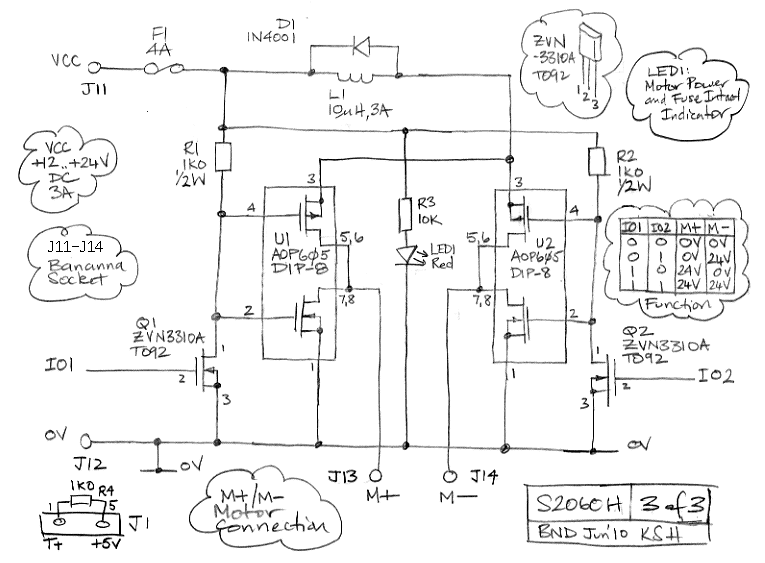 F1
4A
VCC
J11
D1
1N4001
L1
10µH, 3A
ZVN
-3310A
TO92
1 2 3
LED1:
Motor Power
and Fuse Intact
Indicator
VCC
+12..+24V
DC
3A
R1
1K0
1/2W
R2
1K0
1/2W
R3
10K
LED1
Red
3
4
U1
AOP605
DIP-8
5,6
7,8
2
1
3
4
U2
AOP605
DIP-8
5,6
7,8
2
1
J11-J14
Bananna
Socket
IO1 IO2 M+ M-
0 0 0V 0V
0 1 0V 24V
1 0 24V 0V
1 1 24V 24V
Function
Q1
ZVN3310A
TO92
1
2
3
IO1
Q2
ZVN3310A
TO92
1
2
3
IO2
0V
J12
0V
0V
J13
M+
J14
M-
M+/M-
Motor
Connection
1K0 R4
1 5
J1
T+ +5V
S2060H 3 of 3
BND Jun'10 KSH